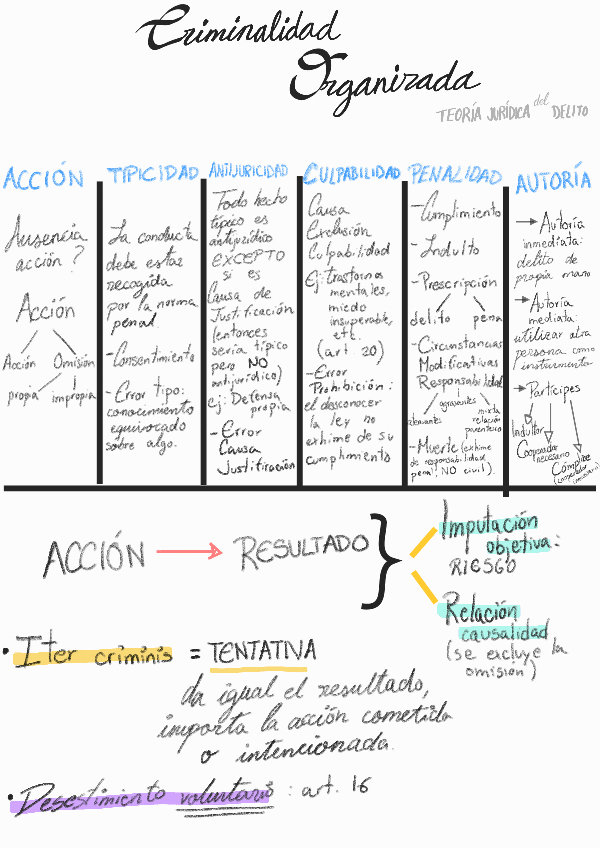 Criminalidad
Organizada
TEORÍA JURÍDICA del DELITO
ACCIÓN
Ausencia
acción?
Acción
Acción Omisión
propia impropia
TIPICIDAD
La conducta
debe estar
recogida
por la norma
penal.
-Consentimiento
-Error tipo:
conocimiento
equivocado
sobre algo.
ANTIJURICIDAD
Todo hecho
típico es
antijurídico
EXCEPTO
si es
Causa de
Justificación
(entonces
sería típico
pero NO
antijurídico)
ej: Defensa
propia
-Error
Causa
Justificación
CULPABILIDAD
Causa
Exclusión
Culpabilidad
Ej: trastornos
mentales,
miedo
insuperable,
etc.
(art 20)
-Error
Prohibición:
el desconocer
la ley no
exhime de su
cumplimiento
PENALIDAD
-Cumplimiento
-Indulto
-Prescripción
delito pena
-Circunstancias
Modificativas
Responsabilidad
agravantes
mixta
relación
parentesco
-Muerte (exhime
de responsabilidad
penal, NO civil).
AUTORÍA
→Autoría
inmediata:
delito de
propia mano
→Autoría
mediata:
utilizar otra
persona como
instrumento
→Partícipes
Inductor
Cooperador
necesario
Cómplice
ACCIÓN → RESULTADO }
Imputación
objetiva:
RIESGO
Relación
causalidad
(se excluye la
omisión)
• Iter criminis = TENTATIVA
da igual el resultado,
importa la acción cometida
o intencionada.
• Desestimiento voluntario : art. 16